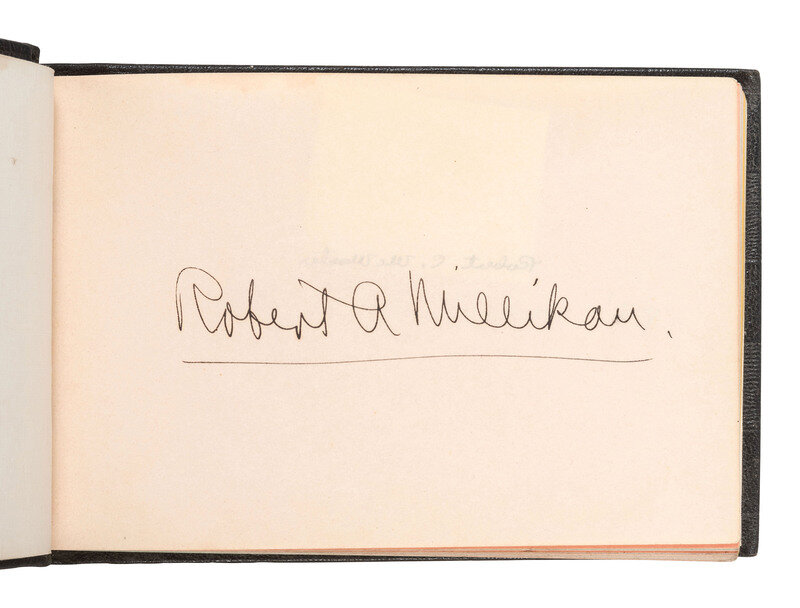 Robert A Millikan.